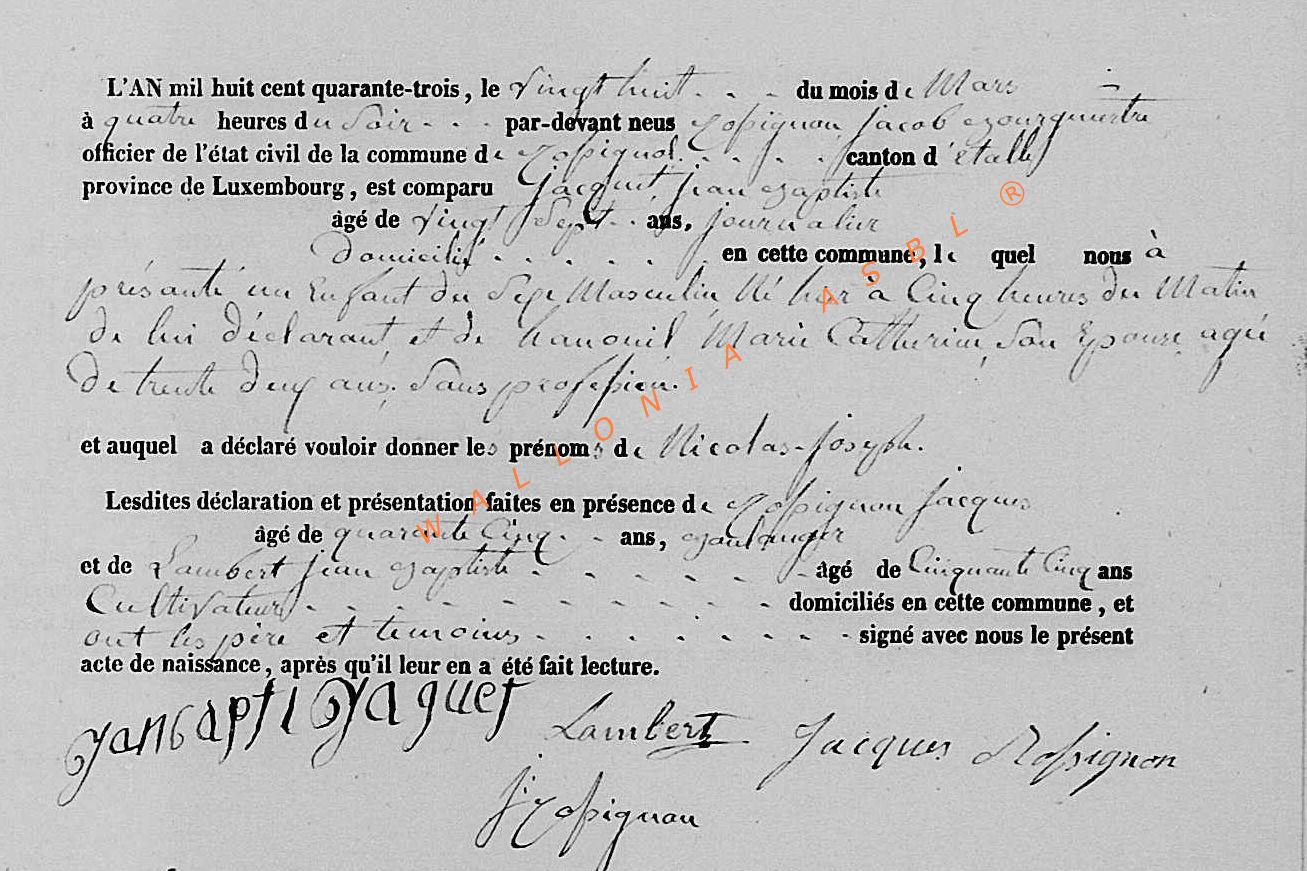 L'AN mil huit cent quarante-trois, le Vingt huit - - - du mois de Mars
à quatre heures du Soir - - - par-devant neus Rossignon Jacob Bourguemtre
officier de l'état civil de la commune de Rossignol - - - - canton d'étalle
province de Luxembourg, est comparu Jacquet Jean Baptiste
âgé de vingt Sept - - ans, journalier
Domicilié - - - - - en cette commune, le quel nous à
présanté un Enfant du Sexe Masculin Né hier à Cinq heures du Matin
de lui déclarant et de Marie Catherine, Son Epouse agée
De trente Deux ans. Sans profession.
et auquel a déclaré vouloir donner les prénoms de Nicolas-Joseph.
Lesdites déclaration et présentation faites en présence de Rossignon Jacques
âgé de quarante Cinq - - ans, Boulanger
et de Lambert Jean Baptiste - - - - - - - âgé de Cinquante Cinq ans
Cultivateurs - - - - - - - - - - domiciliés en cette commune, et
ont les père et temoins - - - - - - - signé avec nous le présent
acte de naissance, après qu'il leur en a été fait lecture.
Janbapti Jaquet Lambert Jacques Rossignon
J Rossignon
WALLONIA ASBL ®